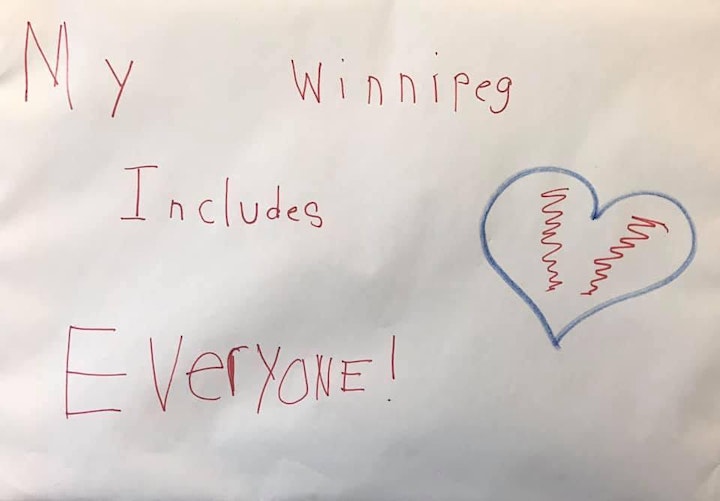 My Winnipeg
Includes
EVeryONE!